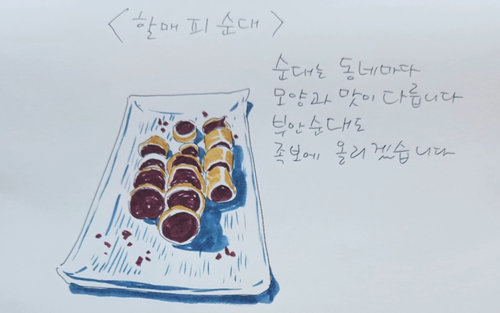 <할매 피순대>
순대는 동네마다
모양과 맛이 다릅니다
부안순대도
족보에 올리겠습니다